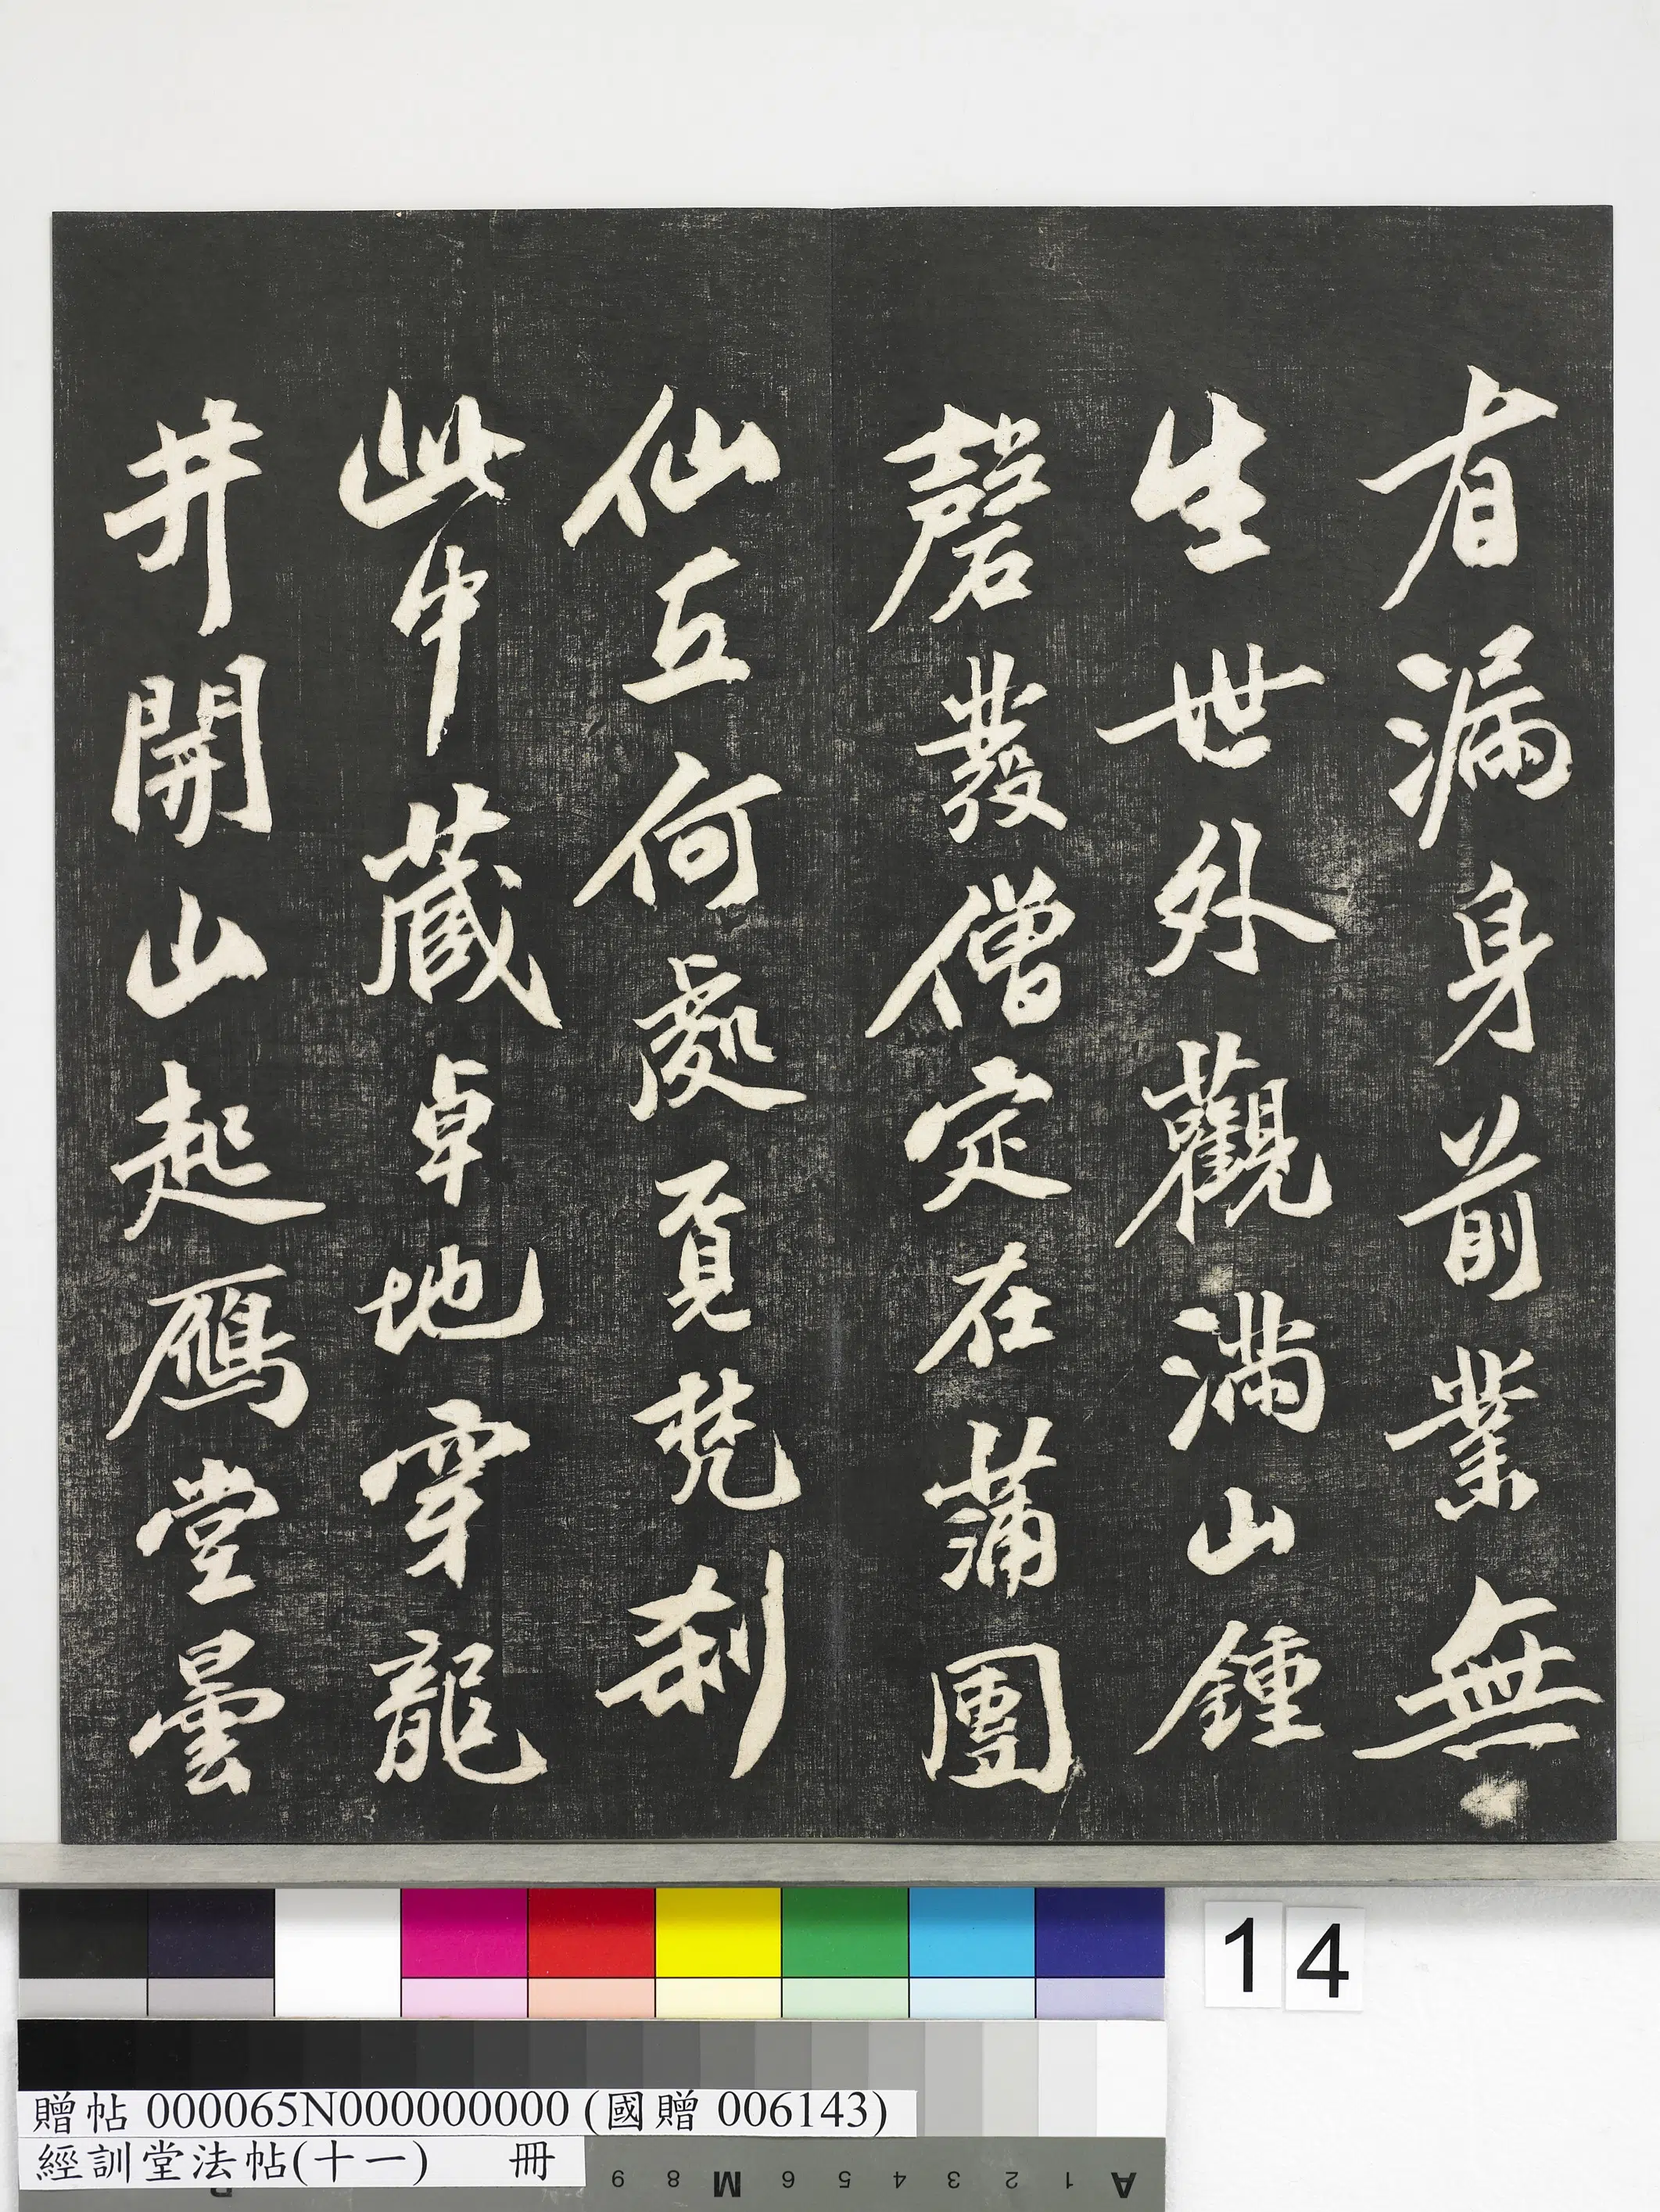 有漏身前業無
生世外觀滿山鍾
磬發僧定在蒲團
仙立何處覓梵刹
此中藏卓地穿龍
井開山起鴈堂曇
14
贈帖 000065N000000000 (國贈 006143)
經訓堂法帖(十一) 冊
A 1 2 3 4 5 6 M 8 9